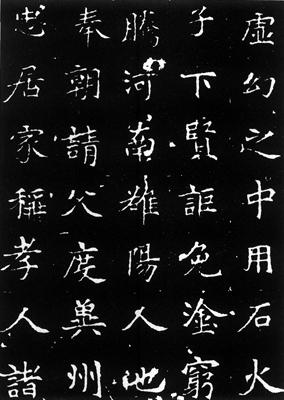 虛幻之中用石火
子下賢詎免塗窮
騰河南雒陽人也
奉朝請父度冀州
忠居家稱孝人諸